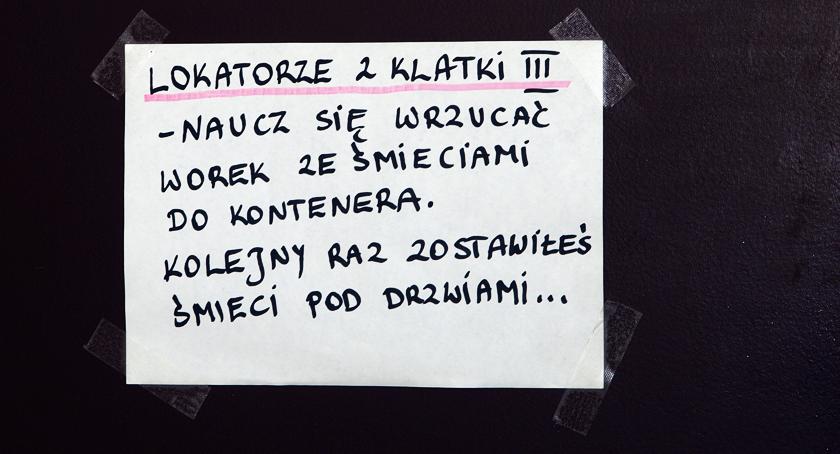 LOKATORZE Z KLATKI III
-NAUCZ SIĘ WRZUCAĆ
WOREK ZE ŚMIECIAMI
DO KONTENERA.
KOLEJNY RAZ ZOSTAWIŁEŚ
ŚMIECI POD DRZWIAMI...